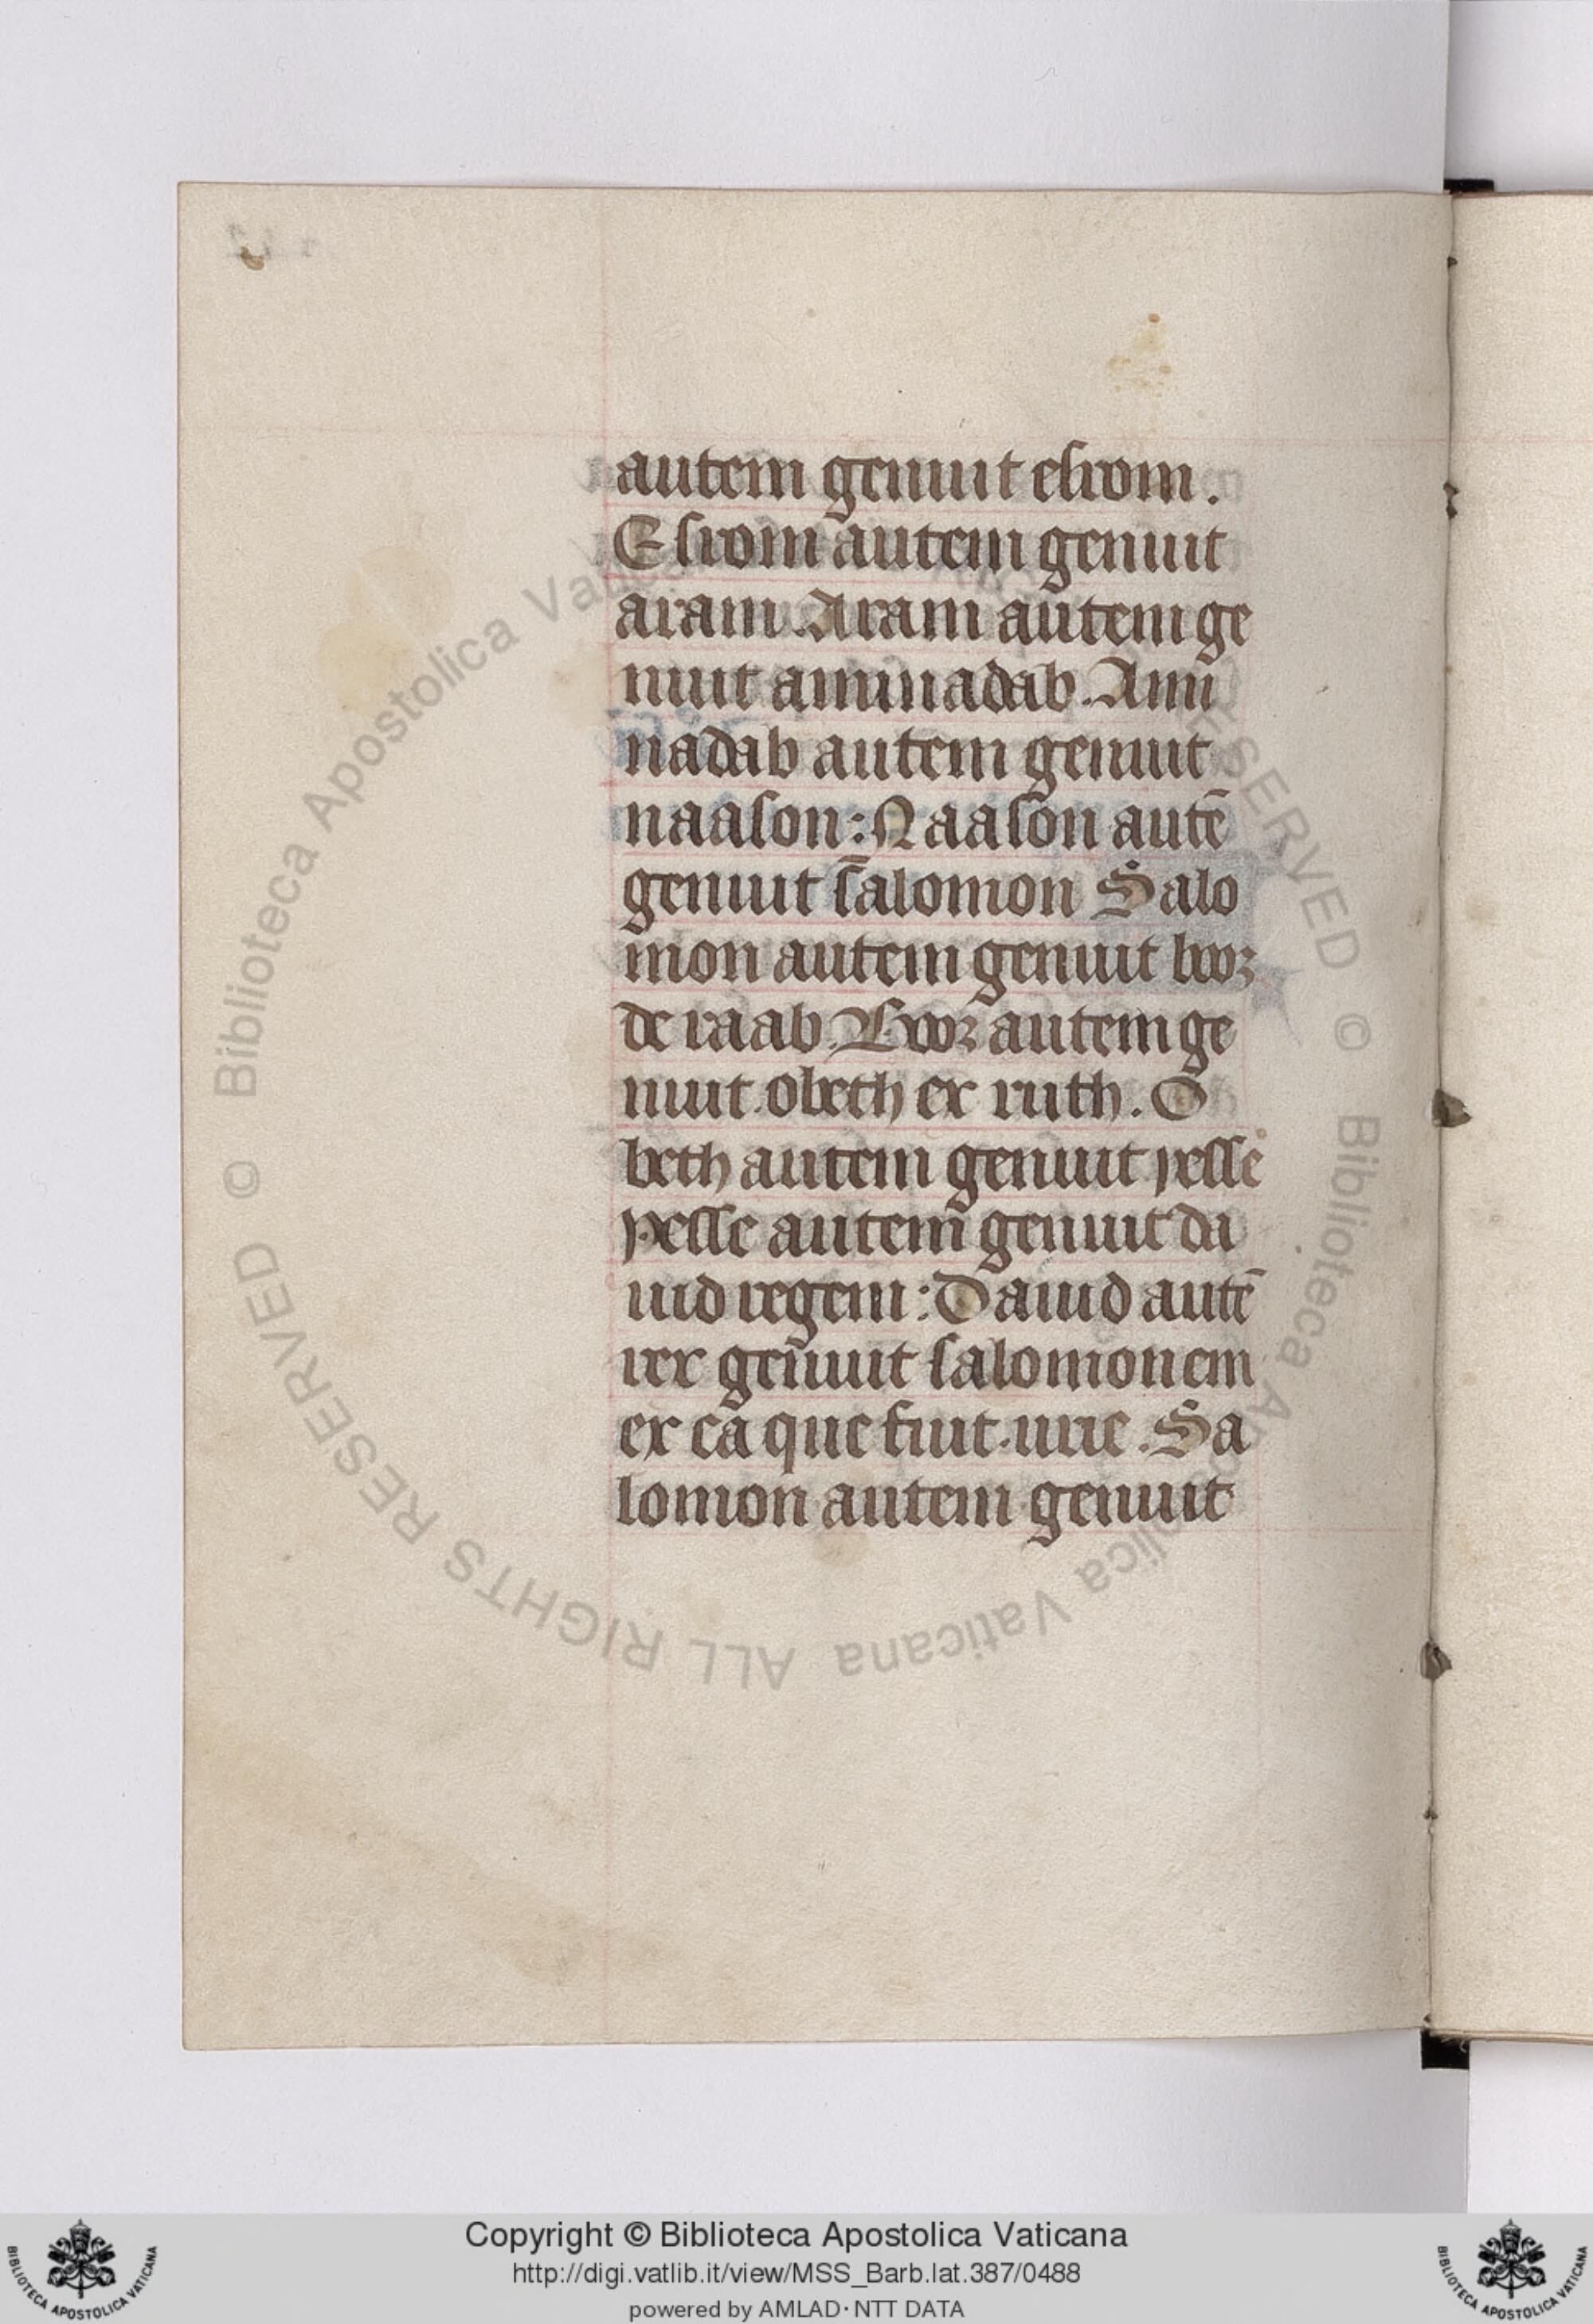 autem genuit esrom.
Esrom autem genuit
aram. Aram autem ge
nuit aminadab. Ami
nadab autem genuit
naason: Naason autē
genuit salomon Salo
mon autem genuit booz
de raab. Booz autem ge
nuit. obeth ex ruth. O
beth autem genuit yesse
yesse autem genuit da
uid regem: Dauid autē
rex genuit salomonem
ex ea que fuit. urie. Sa
lomon autem genuit
© Biblioteca Apostolica Vaticana ALL RIGHTS RESERVED
© Biblioteca Apostolica Vaticana ALL RIGHTS RESERVED
Copyright © Biblioteca Apostolica Vaticana
http://digi.vatlib.it/view/MSS_Barb.lat.387/0488
powered by AMLAD · NTT DATA
BIBLIOTECA APOSTOLICA VATICANA
BIBLIOTECA APOSTOLICA VATICANA